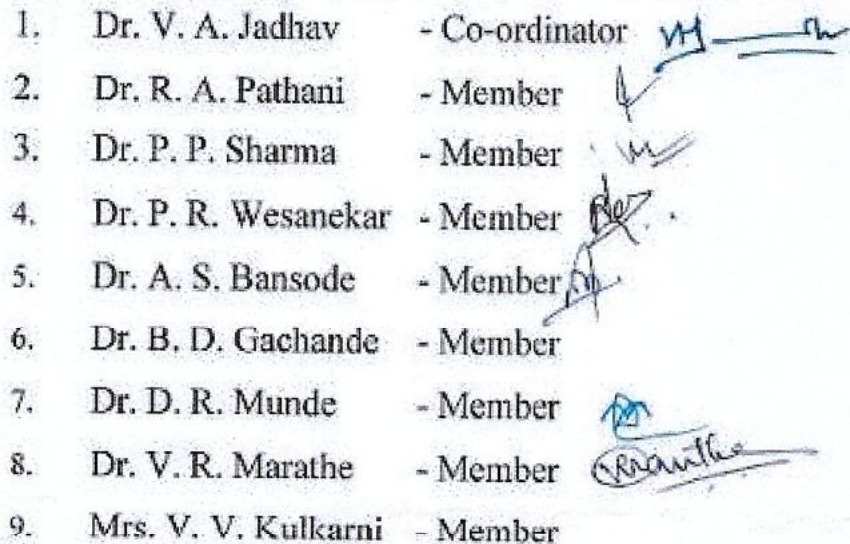 1. Dr. V. A. Jadhav - Co-ordinator
2. Dr. R. A. Pathani - Member
3. Dr. P. P. Sharma - Member
4. Dr. P. R. Wesanekar - Member
5. Dr. A. S. Bansode - Member
6. Dr. B. D. Gachande - Member
7. Dr. D. R. Munde - Member
8. Dr. V. R. Marathe - Member
9. Mrs. V. V. Kulkarni - Member